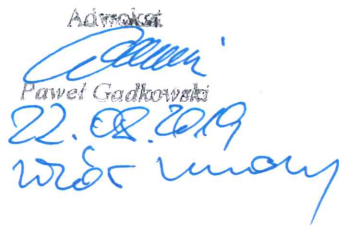 Adwokat
Paweł Gadkowski
22.08.2019
wzór umowy